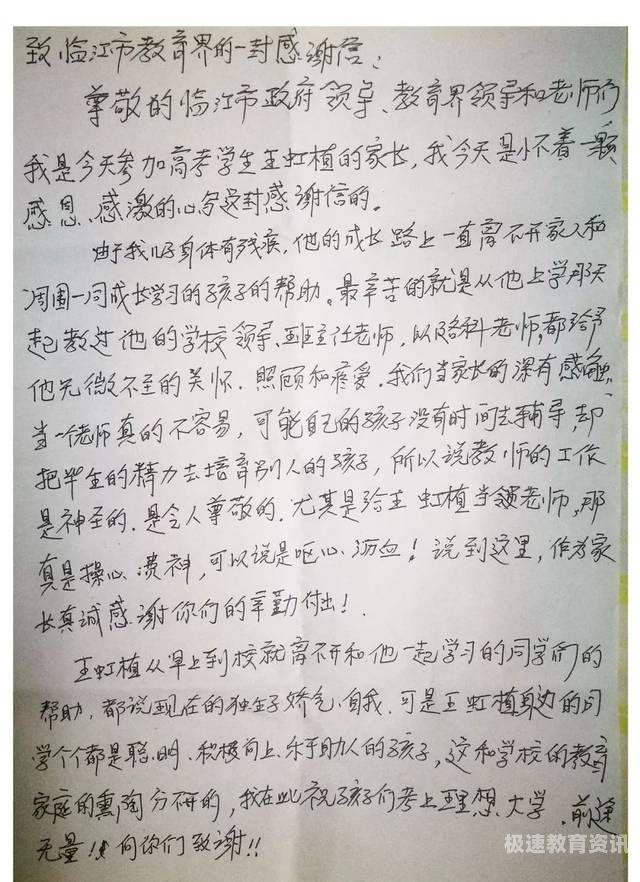 致临江市教育界的一封感谢信:
尊敬的临江市政府领导、教育界领导和老师们
我是今天参加高考学生王虹植的家长,我今天是怀着一颗
感恩、感激的心写这封感谢信的。
由于我儿子身体有残疾,他的成长路上一直离不开家人和
周围一同成长学习的孩子的帮助。最辛苦的就是从他上学那天
起教过他的学校领导、班主任老师,以及各科老师,都给予
他无微不至的关怀.照顾和疼爱.我们当家长的深有感触,
当一个老师真的不容易,可能自己的孩子没有时间去辅导,却
把毕生的精力去培育别人的孩子,所以说教师的工作
是神圣的.是令人尊敬的.尤其是给王虹植当领老师,那
真是操心、费神,可以说是呕心、沥血!说到这里,作为家
长真诚感谢你们的辛勤付出!
王虹植从早上到校就离不开和他一起学习的同学们的
帮助,都说现在的独生子娇气、自我.可是王虹植身边的同
学个个都是聪明、积极向上、乐于助人的孩子,这和学校的教育
家庭的熏陶分不开的,我在此祝孩子们考上理想大学,前途
无量!!向你们致谢!!
极速教育资讯